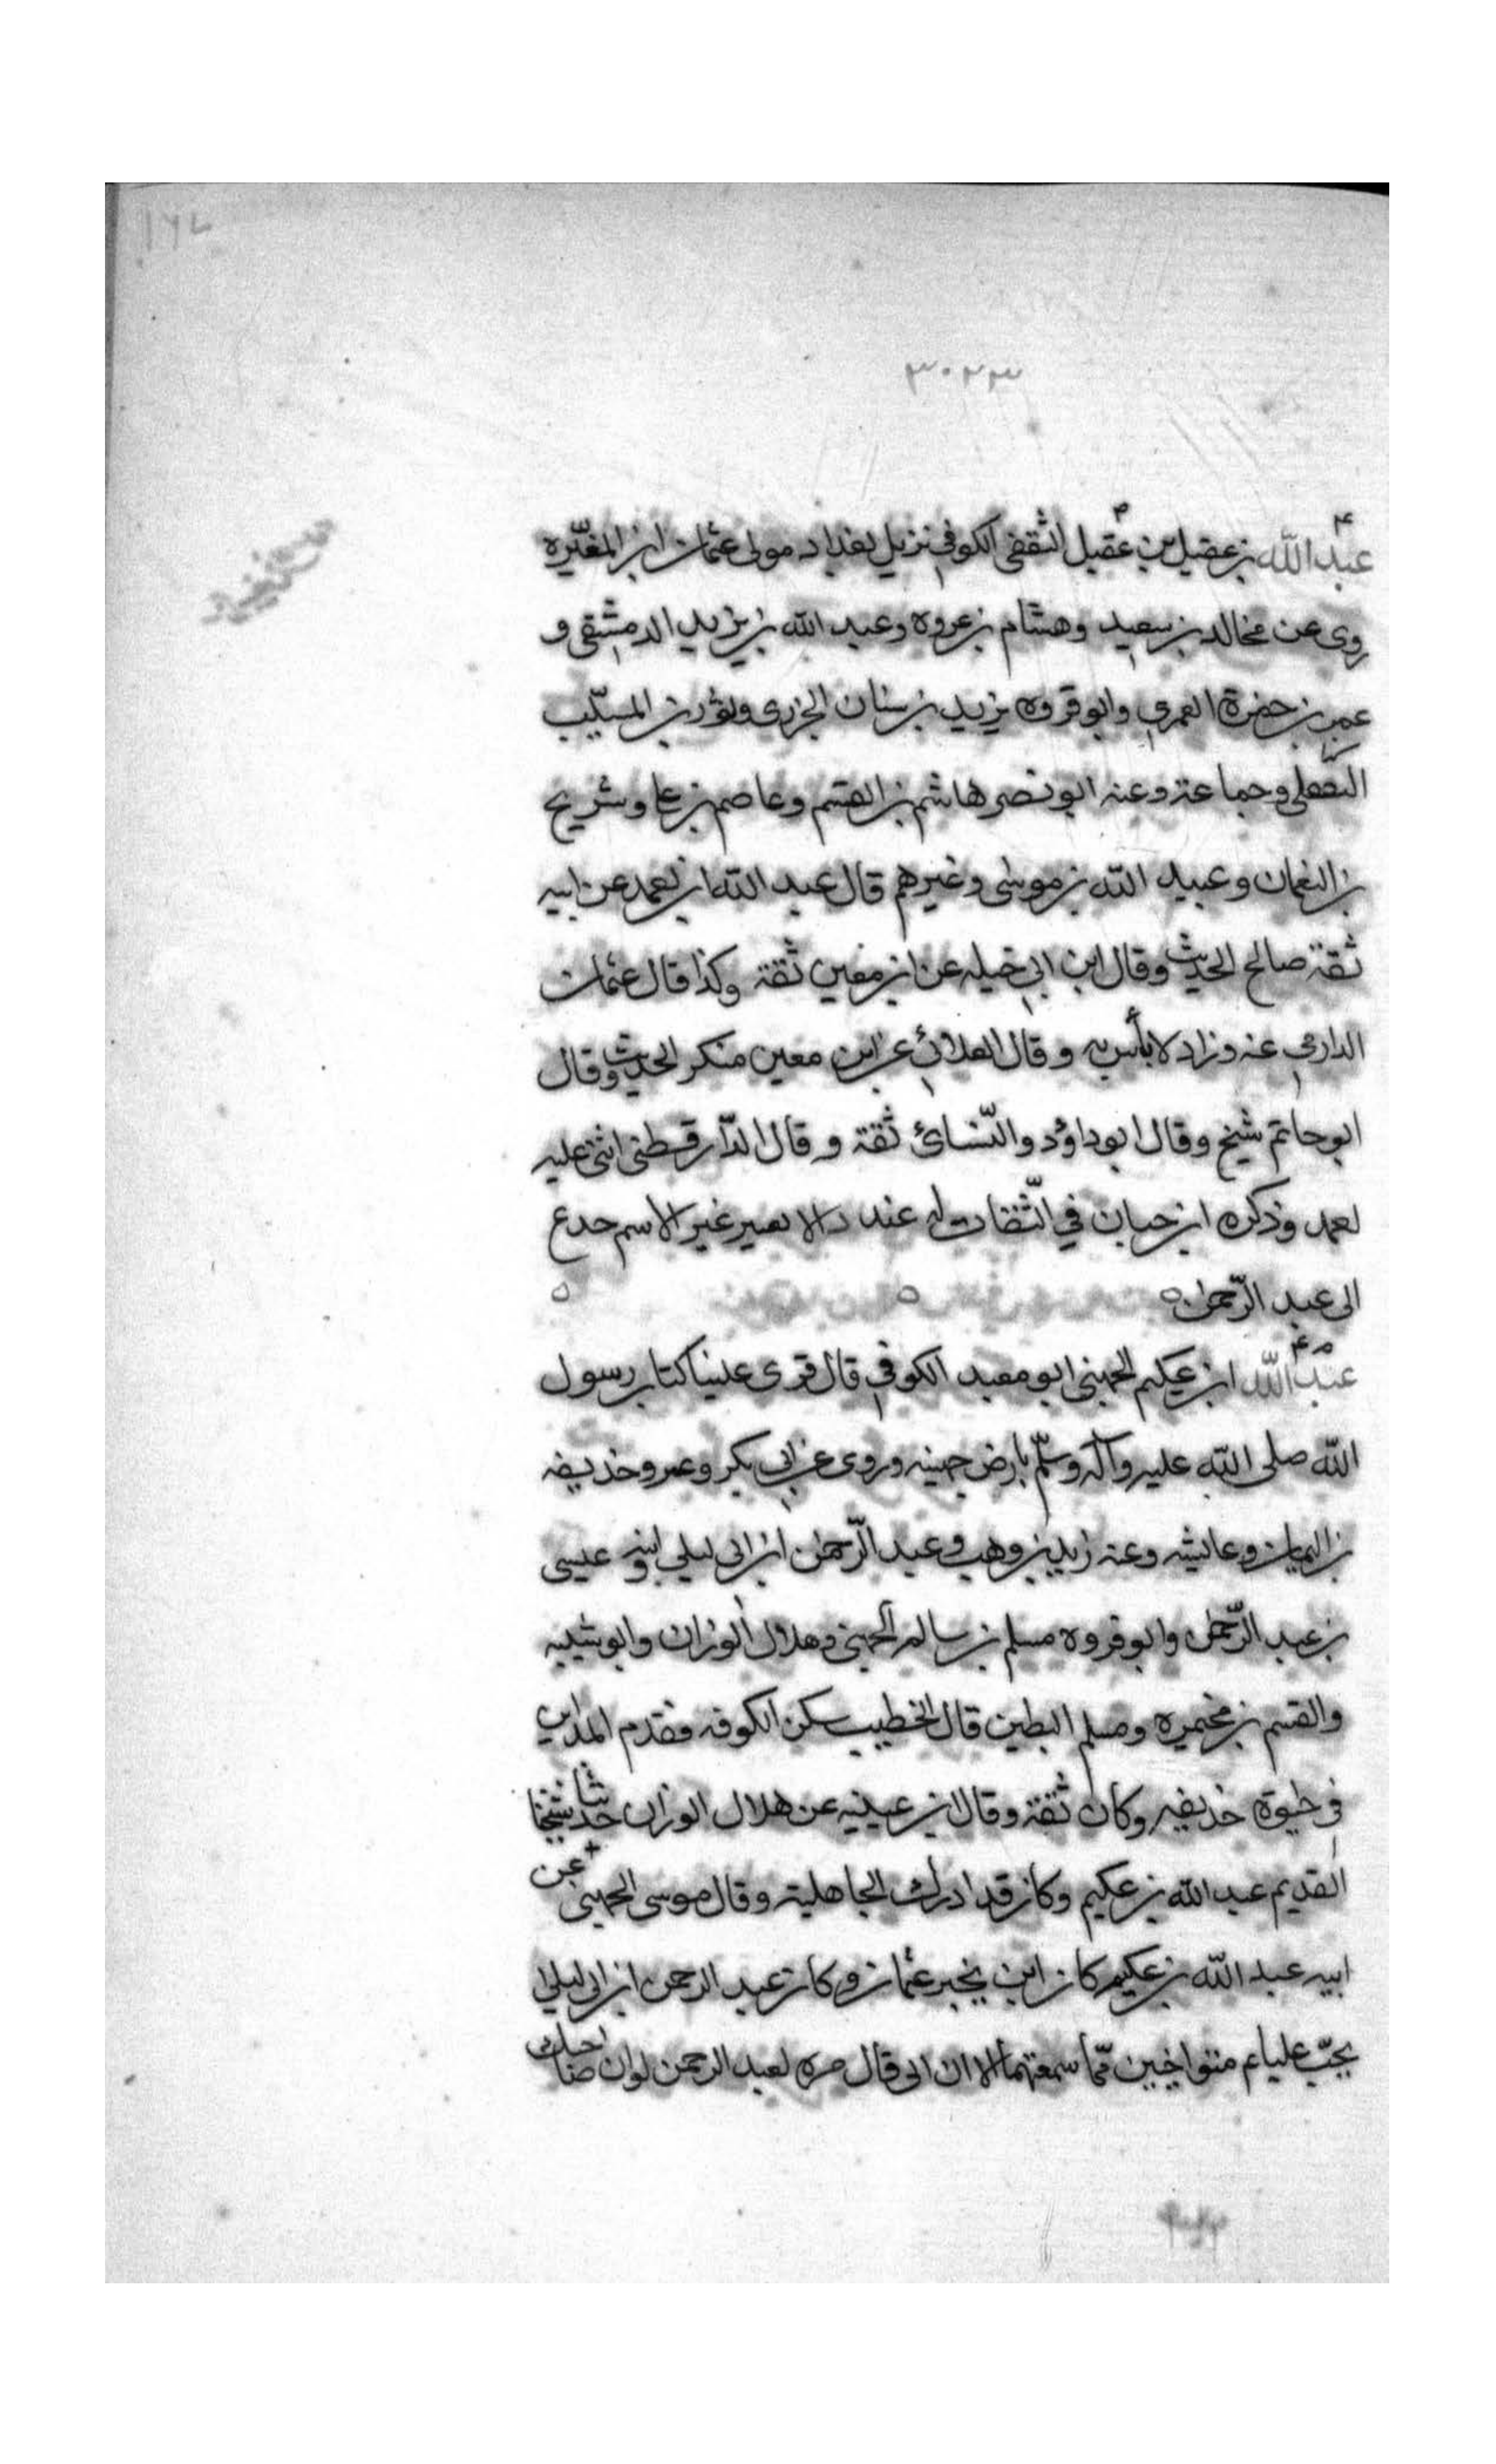 ١٦٧
٣٠٢٣
عبد الله بن عقيل بن عقيل الثقفى الكوفي نزيل بغداد مولى عثمان ابن المغيره
روى عن مخالد بن سعيد وهشام بن عروه وعبد الله بن يزيد الدمشقى و
عمر بن حمزة العمري وابو قروه يزيد بن سنان الجزرى وموسى بن المسيب
وجماعة وعنه ابو نصر هاشم بن القسم وعاصم بن على وشريح
بن النعمان وعبيد الله بن موسى وغيرهم قال عبد الله ابن لعمد عن ابيه
ثقة صالح الحديث وقال ابن ابي خيله عن ابن معين ثقة وكذا قال عثمان
الدارمي عنه وزاد لا بأس به وقال العلائ عن ابن معين منكر الحديث وقال
ابو حاتم شيخ وقال ابو داؤد والنّسائ ثقة وقال الدّارقطنى اثنى عليه
لعمد وذكره ابن حبان في الثّقات له عند غير الاسم حدع
الى عبد الرّحمٰن
عبد الله ابن عكيم الجهنى ابو معبد الكوفي قال قرى علينا كتاب رسول
الله صلى الله عليه وآله وسلّم بارض جهينه وروى عن ابي بكر وعمر وحذيفه
بن اليمان وعايشه وعنه زيد بن وهب وعبد الرّحمٰن ابن ابى ليلى ابنه وعيسى
بن عبد الرّحمٰن وابو قروه مسلم بن سالم الجهنى وهلال الوزان وابو شيبه
والقسم بن مخيمره ومسلم البطين قال الخطيب سكن الكوفه وقدم المداين
في حيوة حذيفه وكان ثقة وقال ابن عيينه عن هلال الوزان حدثنا شيخنا
القديم عبد الله بن عكيم وكان قد ادرك الجاهلية وقال موسى الجهنى عن
ابيه عبد الله بن عكيم كان ابن يخبر عثمان وكان عبد الرحمن ابن ابى ليلى
يحبّ عليا عم متواخيين فما سمعتهما الا ان ابى قال مره لعبد الرحمن لو ان صاحبك